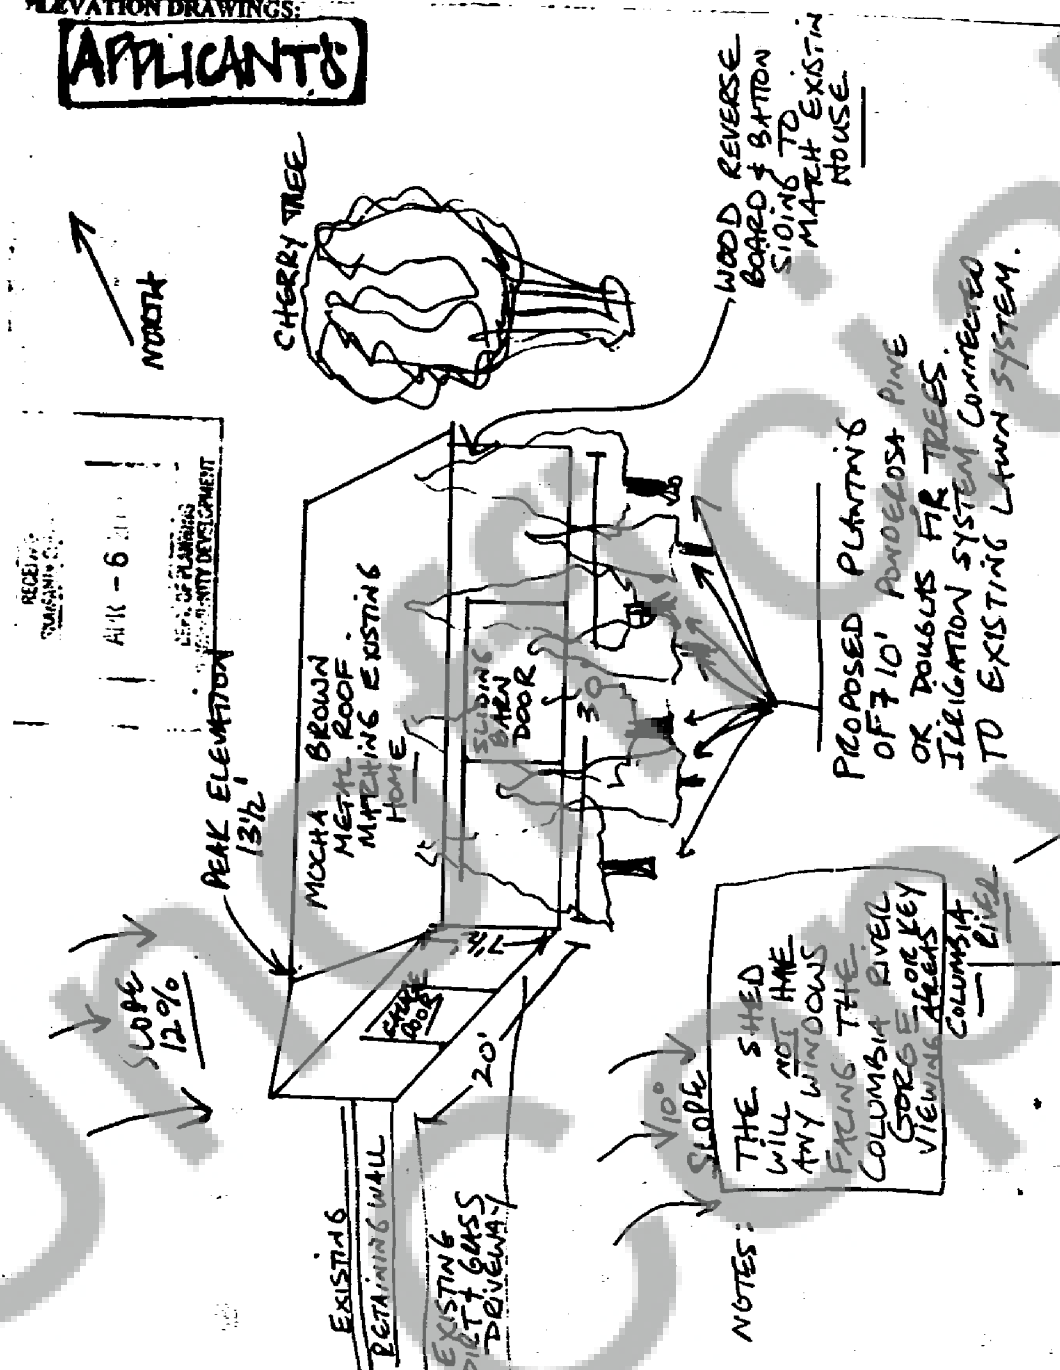 ELEVATION DRAWINGS:
APPLICANTS
NORTH
CHERRY TREE
WOOD REVERSE
BOARD & BATTON
SIDING TO
MATCH EXISTIN
HOUSE
APR - 6
DEPT. OF PLANNING
DEVELOPMENT
PEAK ELEVATION
13½'
SLOPE
12%
MOCHA BROWN
METAL ROOF
MATCHING EXISTING
HOME
SLIDING
BARN
DOOR
DOOR
20'
30'
EXISTING
RETAINING WALL
EXISTING
DIRT & GRASS
DRIVEWAY
PROPOSED PLANTING
OF 7 10' PONDEROSA PINE
OR DOUGLAS FIR TREES.
IRRIGATION SYSTEM CONNECTED
TO EXISTING LAWN SYSTEM.
SLOPE
NOTES:
THE SHED
WILL NOT HAVE
ANY WINDOWS
FACING THE
COLUMBIA RIVER
GORGE OR KEY
VIEWING AREAS
COLUMBIA
RIVER